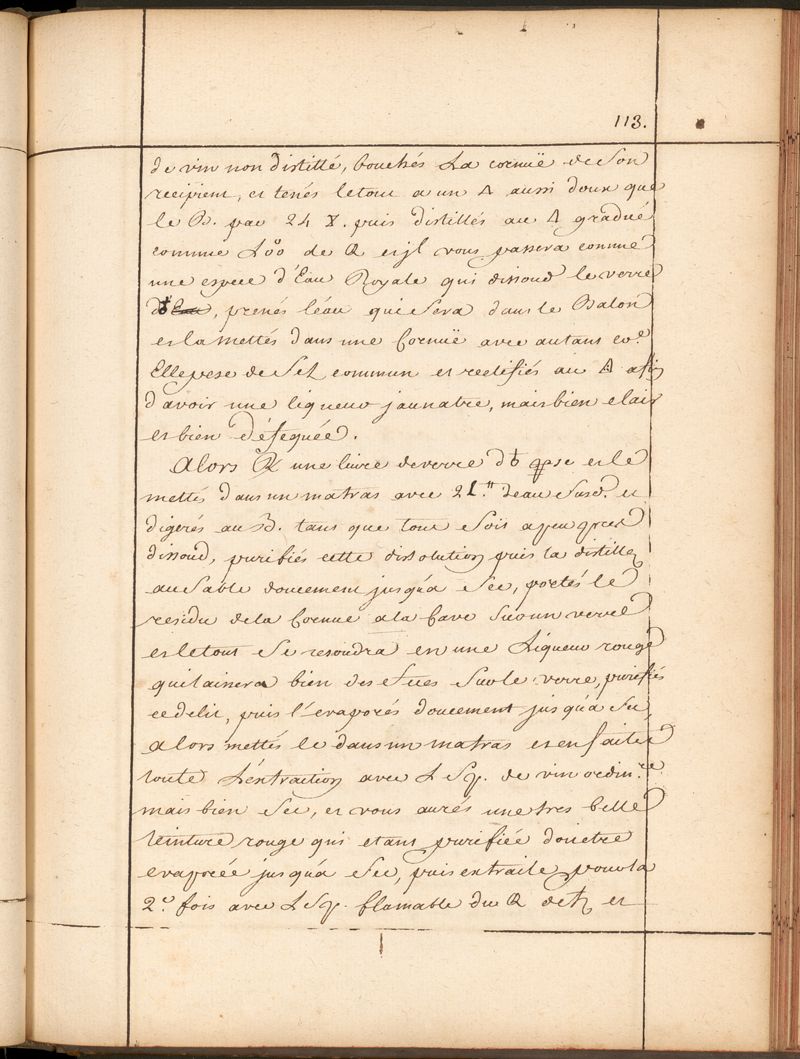 113.
de vin non distillé, bouchés La cornuë de Son
recipient, et tenés letout a un 🜂 aussi doux que
le B. par 24 X. puis distillés au 🜂 gradué
comme L'
de et jl vous passera comme
une espece d'Eau Royale qui dissoud le verre
d'♁, prenés léau qui Sera dans le Balon
et la mettés dans une Cornuë avec autant co.e
Elle pese de Sel commun et rectifiés au 🜂 afin
d'avoir une liqueur jaunatre, mais bien clair
et bien déféquée.
Alors une livre de verre d'♁ et le
mettés dans un matras avec 2 L.'' deau Susd. et
digerés au B. tans que tout Soit apeu pres
dissoud, purifiés cette dissolution puis la distillez
au Sable doucement jusqu'a Sec, portés le
residu dela Cornue ala Cave Sur un verre
et letout Se resoudra en une Liqueur rouge
qui laissera bien des feces Sur le verre, purifiés
ce delit, puis l'evaporés doucement jusqu'a Sec,
alors mettés le dans un matras et en faites
toute L'extraction avec L Sp. de vin ordin.re
mais bien Sec, et vous aurés une tres belle
teinture rouge qui etant purifiée doit etre
evaporée jusqu'a Sec, puis extraite pour la
2.e fois avec L Sp. flamable du de et